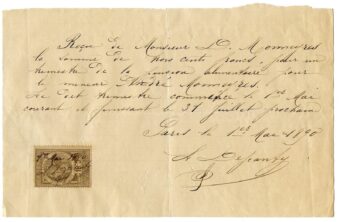 Reçu de Monsieur D. Monnières
la somme de trois cents francs, pour un
trimestre de la pension alimentaire pour
le mineur André Monnières.
Le dit trimestre commençant le 1er Mai
courant et finissant le 31 juillet prochain
Paris le 1er Mai 1890